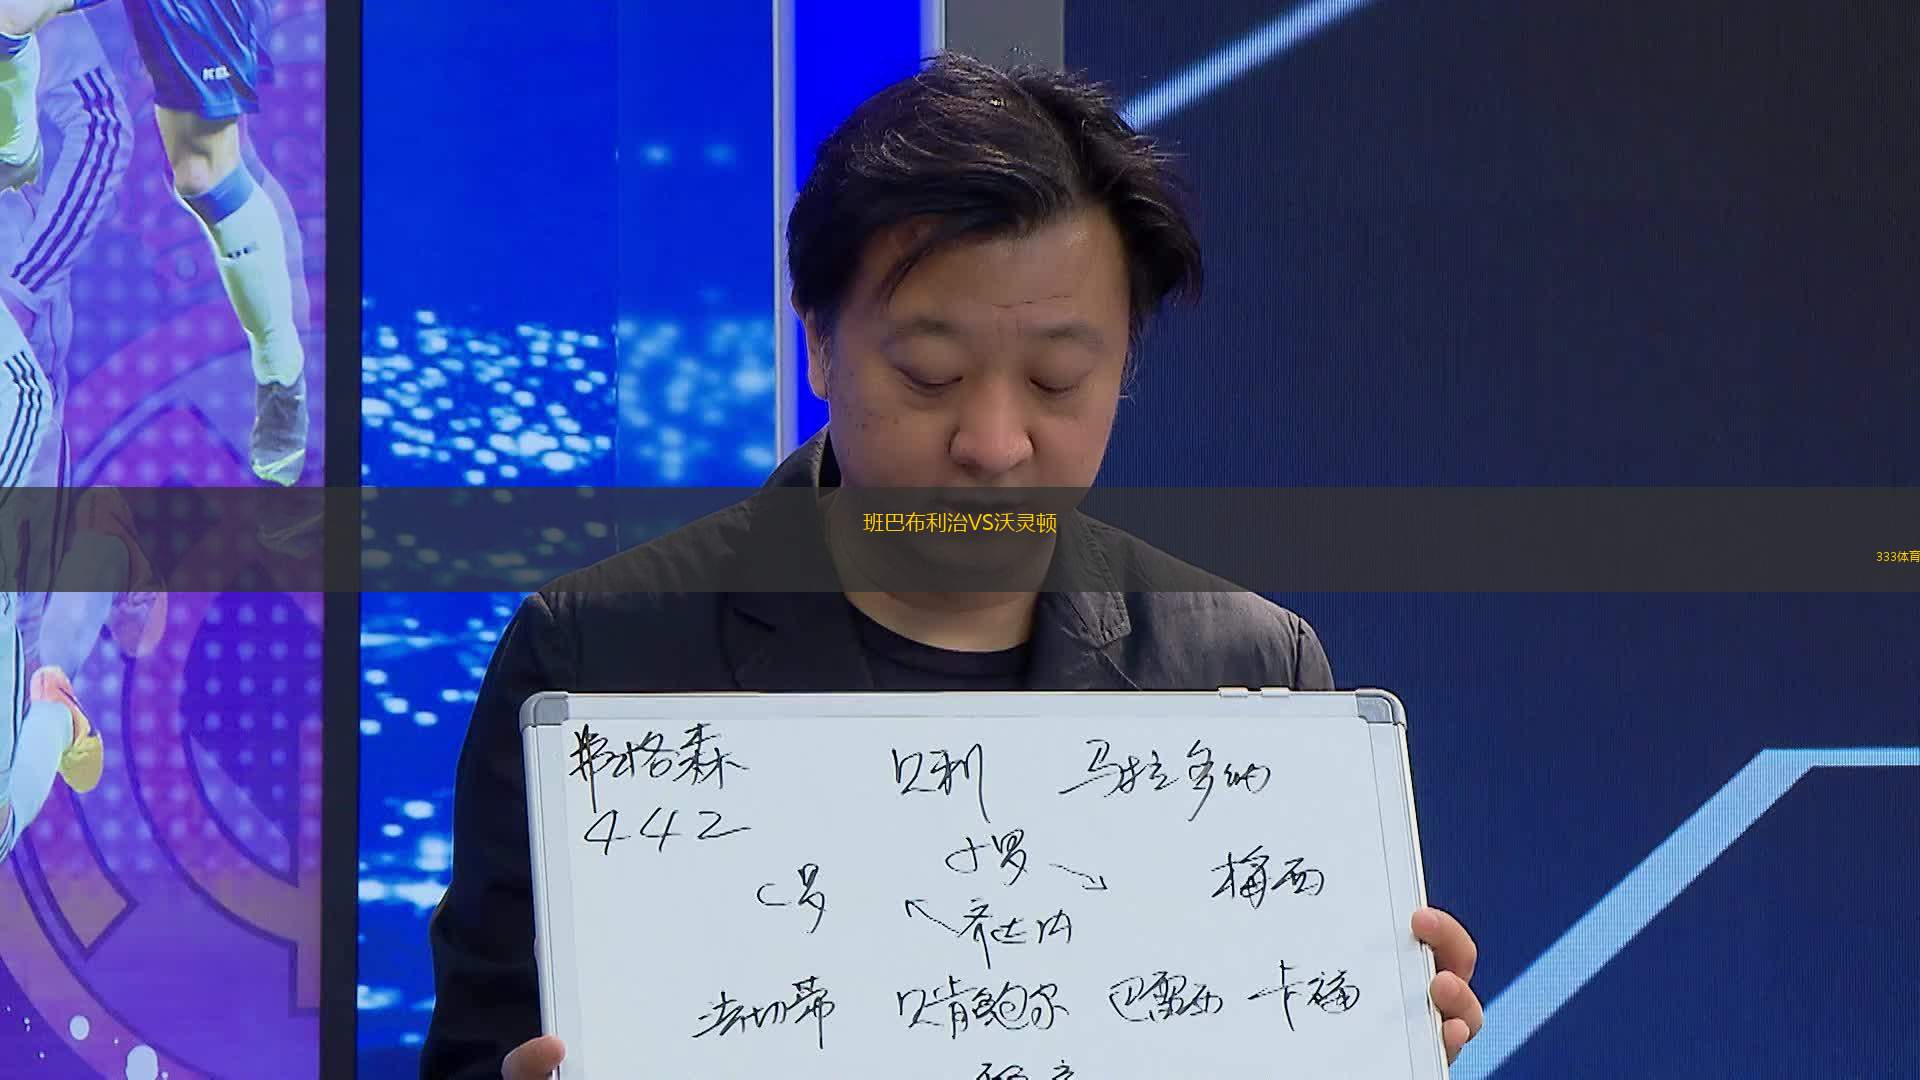 班巴布利治VS沃灵顿
333体育
弗格森 贝利 马拉多纳
442
小罗
C罗 梅西
齐达内
法切蒂 贝肯鲍尔 巴雷西 卡福